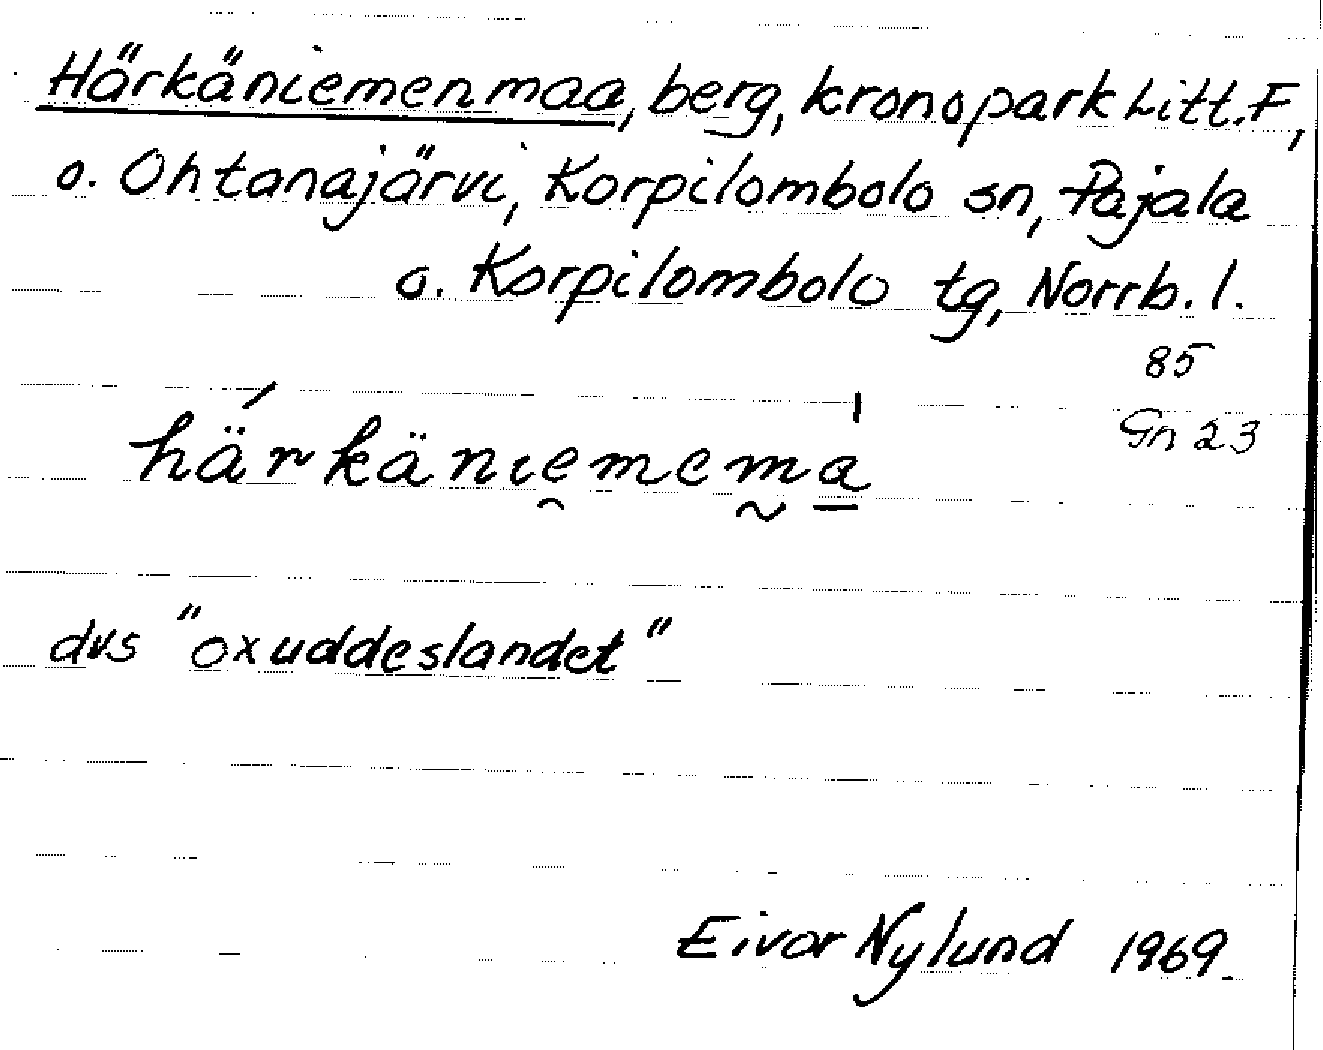 Härkäniemenmaa, berg, kronopark Litt. F,
o. Ohtanajärvi, Korpilombolo sn, Pajala
o. Korpilombolo tg, Norrb. l.
85
Gn 23
härkäniemema
dvs "oxuddeslandet"
Eivor Nylund 1969.